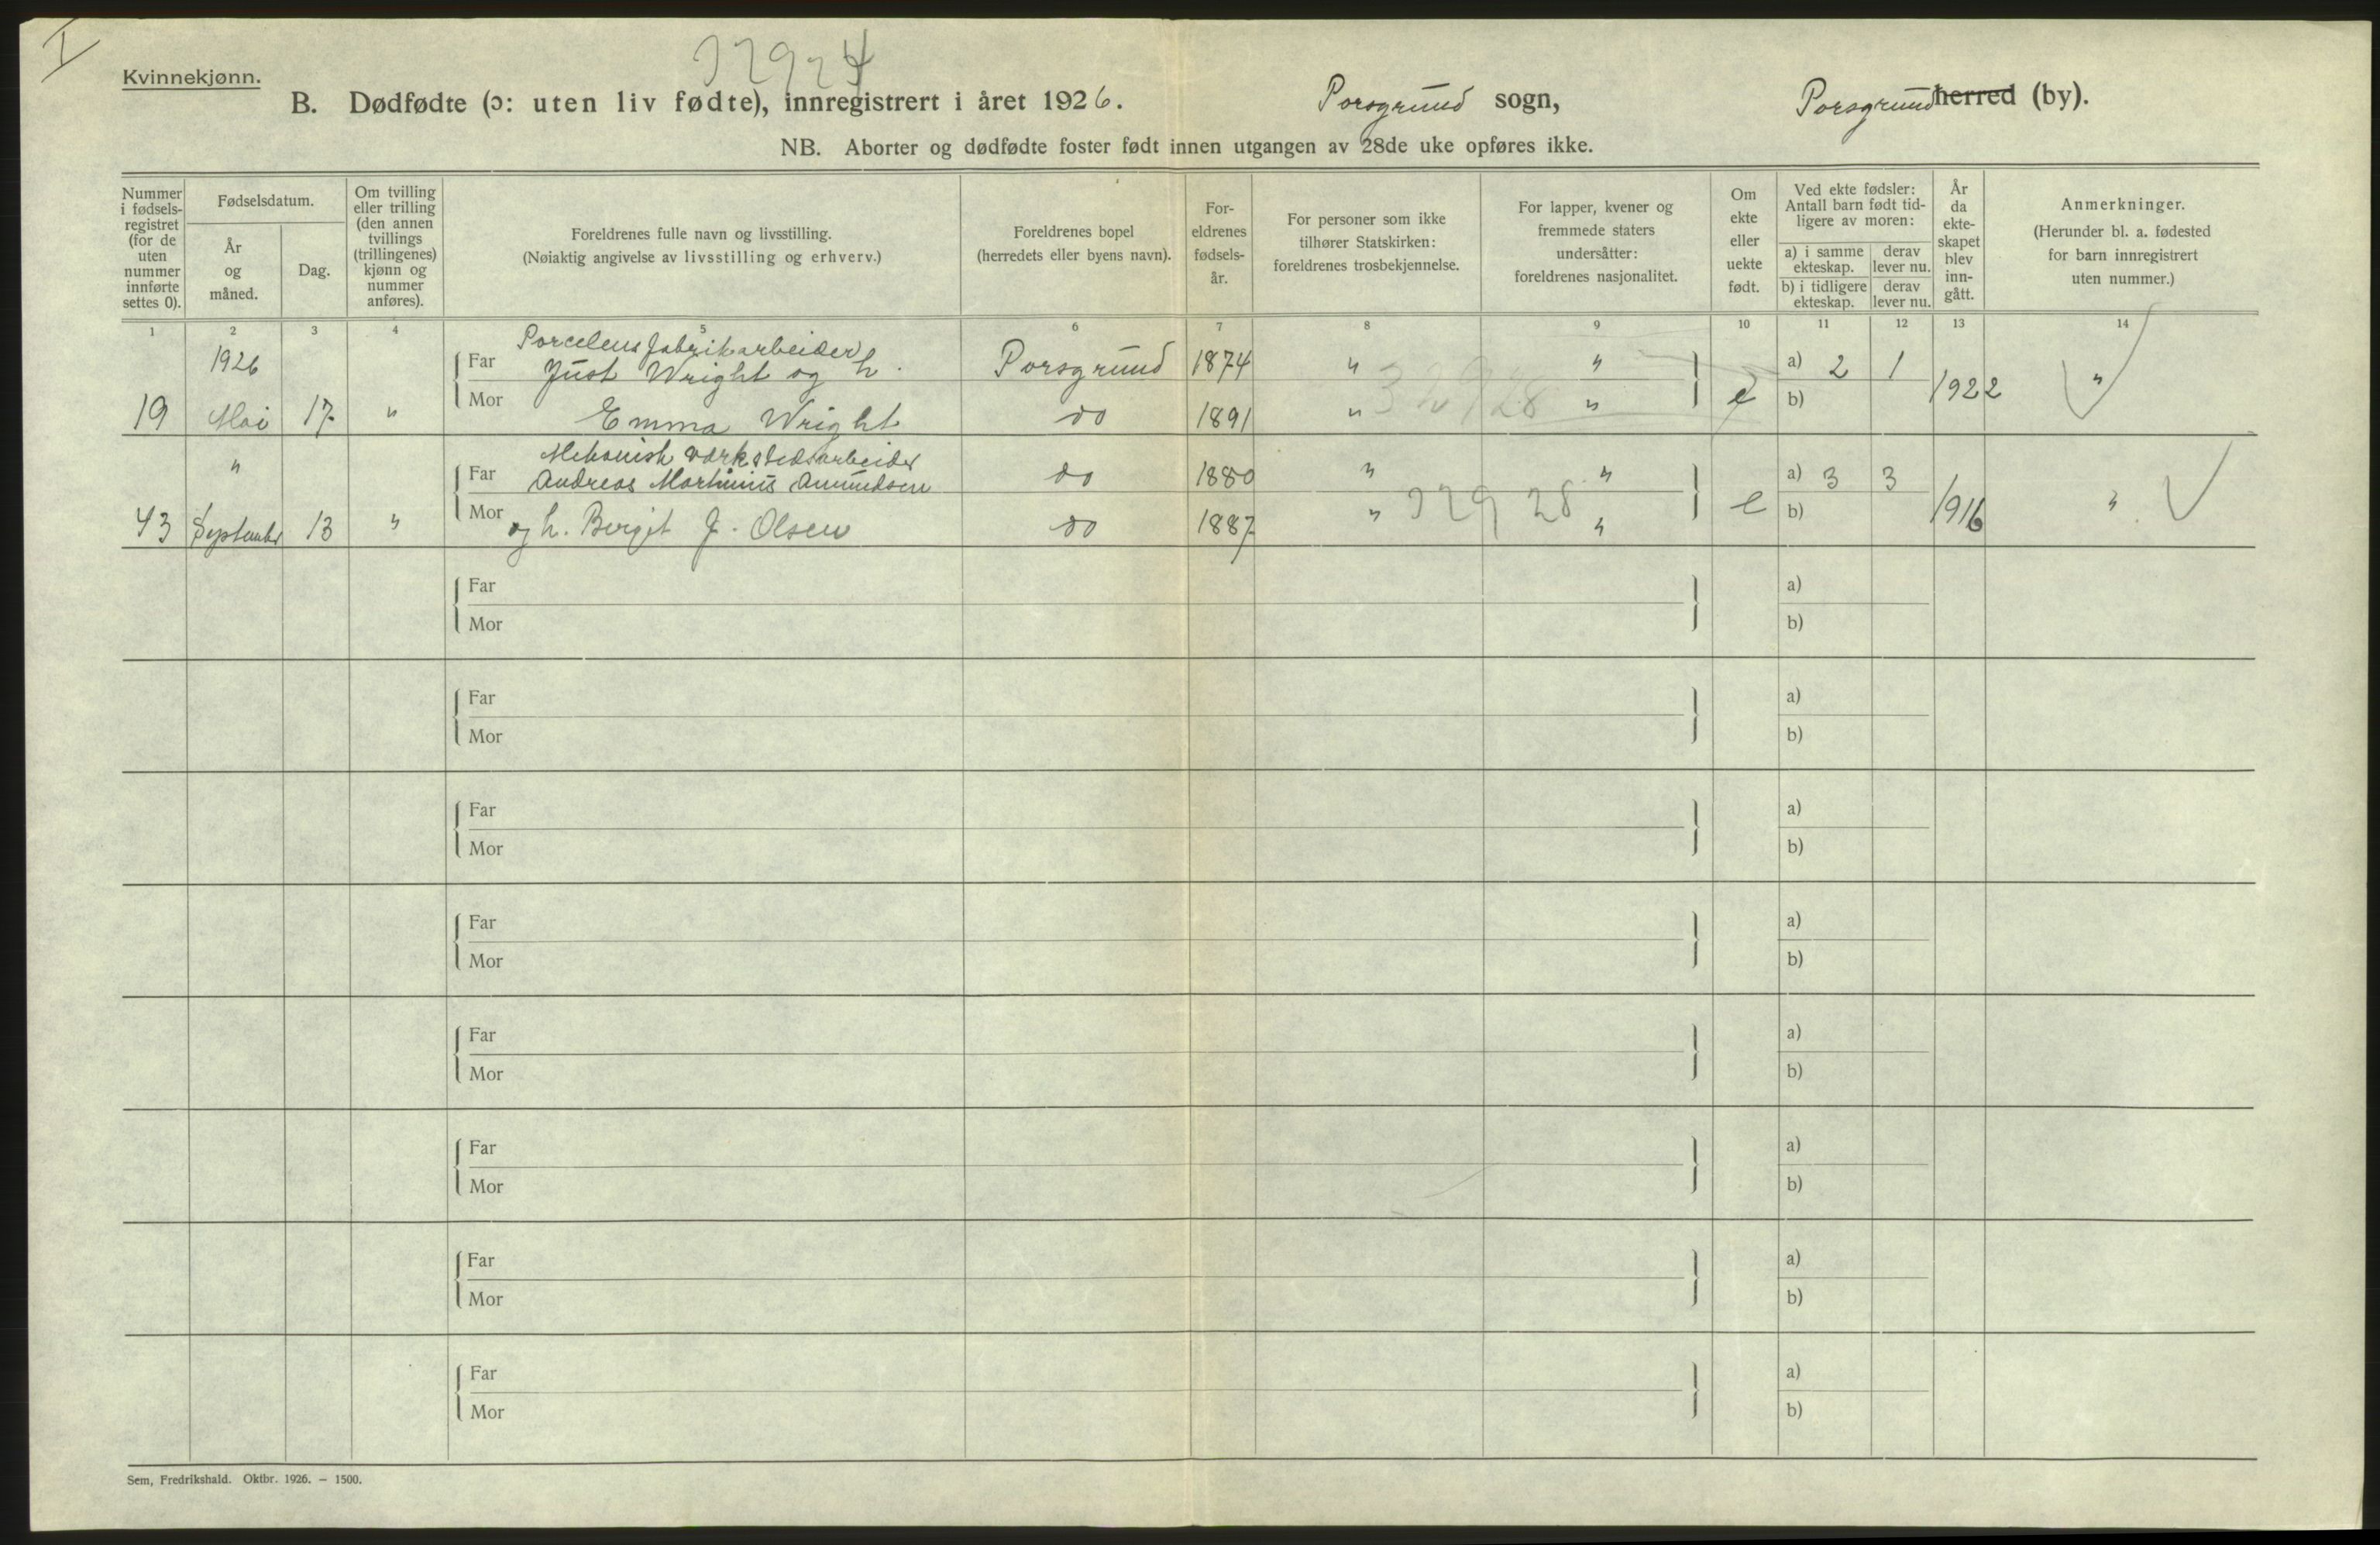 I
Kvinnekjønn.
B. Dødfødte (ɔ: uten liv fødte), innregistrert i året 1926. Porsgrund sogn, Porsgrund herred (by).
NB. Aborter og dødfødte foster født innen utgangen av 28de uke opføres ikke.
Nummer i fødselsregistret (for de uten nummer innførte settes 0).
Fødselsdatum.
År og måned.
Dag.
Om tvilling eller trilling (den annen tvillings (trillingenes) kjønn og nummer anføres).
Foreldrenes fulle navn og livsstilling.
(Nøiaktig angivelse av livsstilling og erhverv.)
Foreldrenes bopel
(herredets eller byens navn).
Foreldrenes fødselsår.
For personer som ikke tilhører Statskirken: foreldrenes trosbekjennelse.
For lapper, kvener og fremmede staters undersåtter: foreldrenes nasjonalitet.
Om ekte eller uekte født.
Ved ekte fødsler: Antall barn født tidligere av moren:
a) i samme ekteskap. derav lever nu.
b) i tidligere ekteskap. derav lever nu.
År da ekteskapet blev inngått.
Anmerkninger.
(Herunder bl. a. fødested for barn innregistrert uten nummer.)
1 2 3 4 5 6 7 8 9 10 11 12 13 14
Porcelensfabrikarbeider
1926 Far Just Wright og h. Porsgrund 1874 " " a) 2 1
19 Mai 17 " Mor Emma Wright do 1891 " " e b) 1922 "
32928
Mekanisk værkstedsarbeider
" Far Andreas Martinius Amundsen do 1880 " " a) 3 3
43 September 13 " Mor og h. Bergit J. Olsen do 1887 " " e b) 1916 "
32928
Far a)
Mor b)
Far a)
Mor b)
Far a)
Mor b)
Far a)
Mor b)
Far a)
Mor b)
Far a)
Mor b)
Far a)
Mor b)
Far a)
Mor b)
Sem, Fredrikshald. Oktbr. 1926. – 1500.